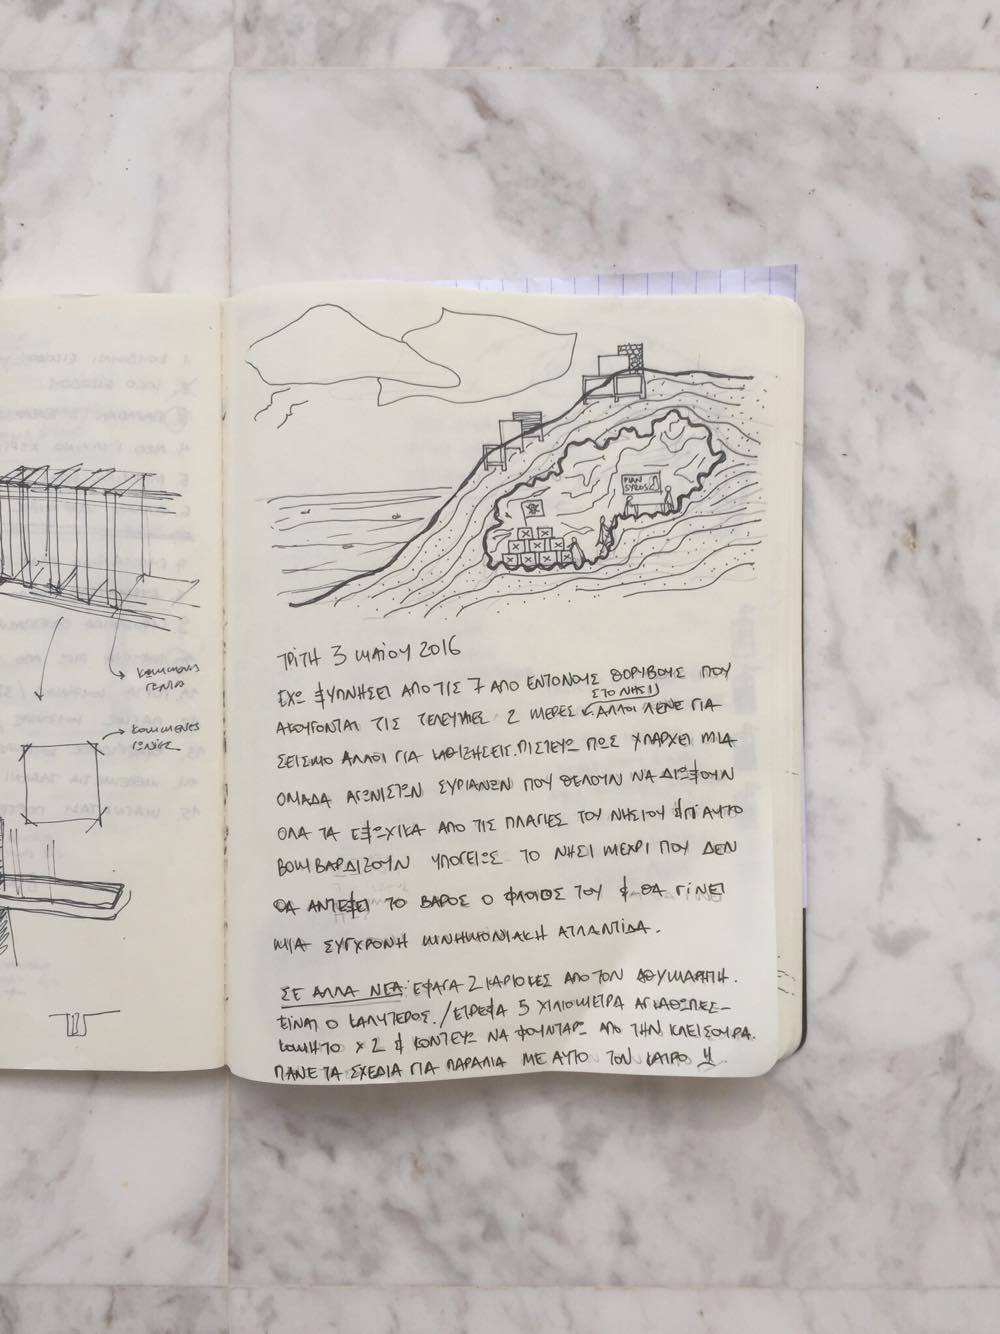 PLAN
SYROS
ΚΟΜΜΕΝΗ
ΓΩΝΙΑ
ΚΟΜΜΕΝΕΣ
ΓΩΝΙΕΣ
ΤΡΙΤΗ 3 ΜΑΪΟΥ 2016
ΕΧΩ ΞΥΠΝΗΣΕΙ ΑΠΟ ΤΙΣ 7 ΑΠΟ ΕΝΤΟΝΟΥΣ ΘΟΡΥΒΟΥΣ ΠΟΥ
ΑΚΟΥΓΟΝΤΑΙ ΤΙΣ ΤΕΛΕΥΤΑΙΕΣ 2 ΜΕΡΕΣ ΣΤΟ ΝΗΣΙ. ΑΛΛΟΙ ΛΕΝΕ ΓΙΑ
ΣΕΙΣΜΟ ΑΛΛΟΙ ΓΙΑ ΚΑΘΙΖΗΣΕΙΣ. ΠΙΣΤΕΥΩ ΠΩΣ ΥΠΑΡΧΕΙ ΜΙΑ
ΟΜΑΔΑ ΑΓΩΝΙΣΤΩΝ ΣΥΡΙΑΝΩΝ ΠΟΥ ΘΕΛΟΥΝ ΝΑ ΔΙΩΞΟΥΝ
ΟΛΑ ΤΑ ΕΞΟΧΙΚΑ ΑΠΟ ΤΙΣ ΠΛΑΓΙΕΣ ΤΟΥ ΝΗΣΙΟΥ & ΓΙ ΑΥΤΟ
ΒΟΜΒΑΡΔΙΖΟΥΝ ΥΠΟΓΕΙΩΣ ΤΟ ΝΗΣΙ ΜΕΧΡΙ ΠΟΥ ΔΕΝ
ΘΑ ΑΝΤΕΞΕΙ ΤΟ ΒΑΡΟΣ Ο ΦΛΟΙΟΣ ΤΟΥ & ΘΑ ΓΙΝΕΙ
ΜΙΑ ΣΥΓΧΡΟΝΗ ΜΝΗΜΟΝΙΑΚΗ ΑΤΛΑΝΤΙΔΑ.
ΣΕ ΑΛΛΑ ΝΕΑ: ΕΦΑΓΑ 2 ΚΑΡΙΟΚΕΣ ΑΠΟ ΤΟΝ ΑΘΥΜΑΡΙΤΗ.
ΕΙΝΑΙ Ο ΚΑΛΥΤΕΡΟΣ. / ΕΤΡΕΞΑ 5 ΧΙΛΙΟΜΕΤΡΑ ΑΓΚΑΘΩΠΕΣ-
ΚΟΜΗΤΟ x 2 & ΚΟΝΤΕΥΩ ΝΑ ΦΟΥΝΤΑΡΩ ΑΠΟ ΤΗΝ ΚΛΕΙΣΟΥΡΑ.
ΠΑΝΕ ΤΑ ΣΧΕΔΙΑ ΓΙΑ ΠΑΡΑΛΙΑ ΜΕ ΑΥΤΟ ΤΟΝ ΚΑΙΡΟ